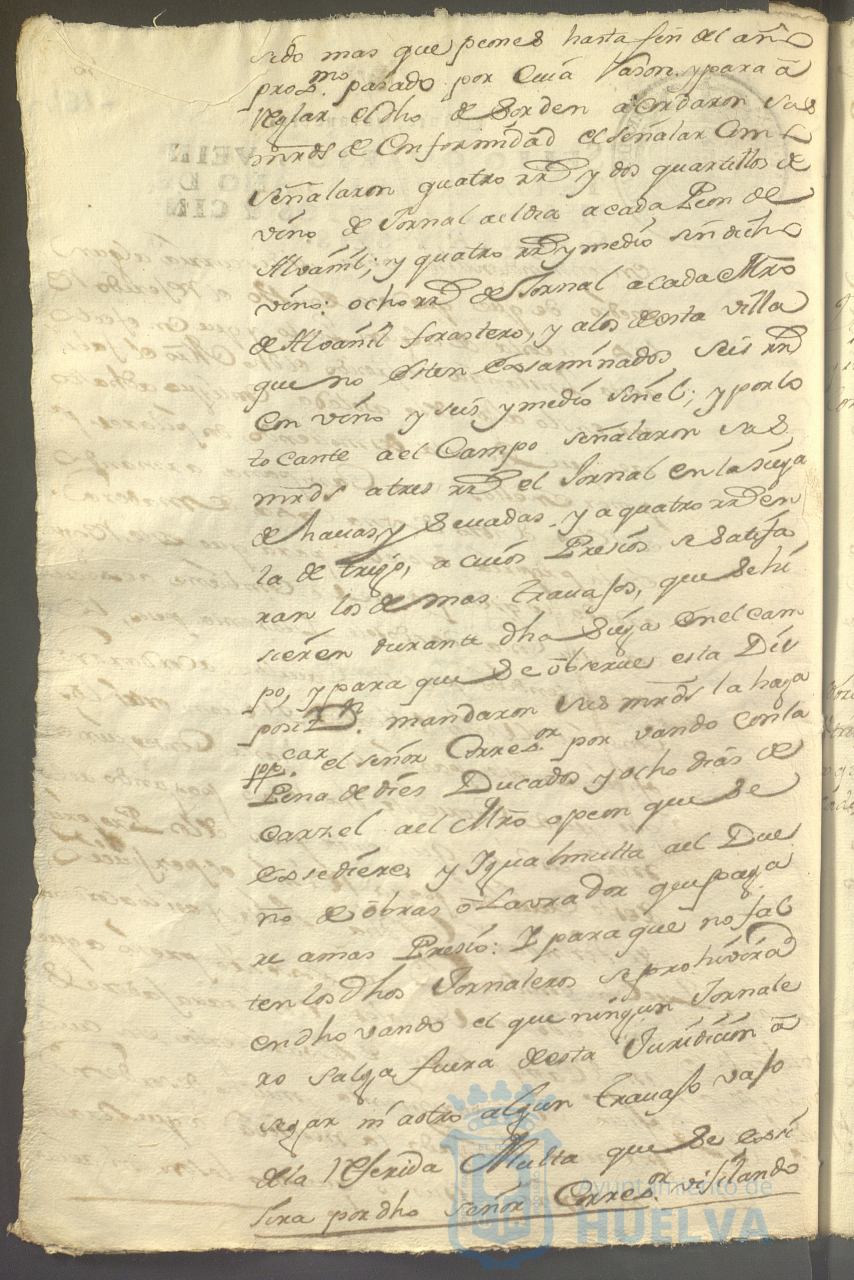 sido mas que peones hasta fin del año
pro.mo pasado por cuia rason. y para a
reglar el dho de sorden acordaron sus
mrds de Conformidad el señalar Com
señalaron quatro rrs y dos quartillos de
vino de Jornal al dia acada Peon de
Alvañil; y quatro rrs y medio sin dicho
vino: ocho rrs de Jornal acada Mro
de Alvañil forastero, y alos de esta villa
que no esten Exsaminados seis rrs
con vino y seis y medio sin el; y por lo
tocante a el Campo señalaron sus
mrds a tres rrs el Jornal en la siega
de havas y sevadas. y a quatro rrs en
la de trigo, a cuios Presios se satisfa
ran los demas travajos, que se hi
sieren durante dha siega en el cam
po, y para que se observe esta Dis
posizn. mandaron sus mrds la haga
ppcar el señor Corresor. por vando con la
Pena de dies Ducados y ocho dias de
Carzel a el Mro o peon que se
exsediere, y Igual multa a el Due
ño de obras o Lavrador que paga
re amas Presio: Y para que no fal
ten los dhos Jornaleros se prohivirá
en dho vando el que ningun Jornale
ro salga fuera desta Juridicion a
segar ni a otro algun travajo vajo
de la referida Multa que se exsi
jira por dho señor Corresor. visitando
Ayuntamiento de
HUELVA